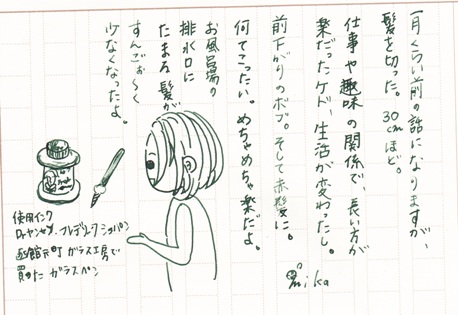 一月くらい前の話になりますが、
髪を切った。30cmほど。
仕事や趣味の関係で、長い方が
楽だったケド、生活が変わったし。
前下がりのボブ。そして赤髪に。
何てこったい。めちゃめちゃ楽だよ。
お風呂場の
排水口に
たまる髪が
すんごぉ〜く
少なくなったよ。
mika
使用インク
ロイヤンセン、フレデリック・ショパン
函館元町ガラス工房で
買ったガラスペン